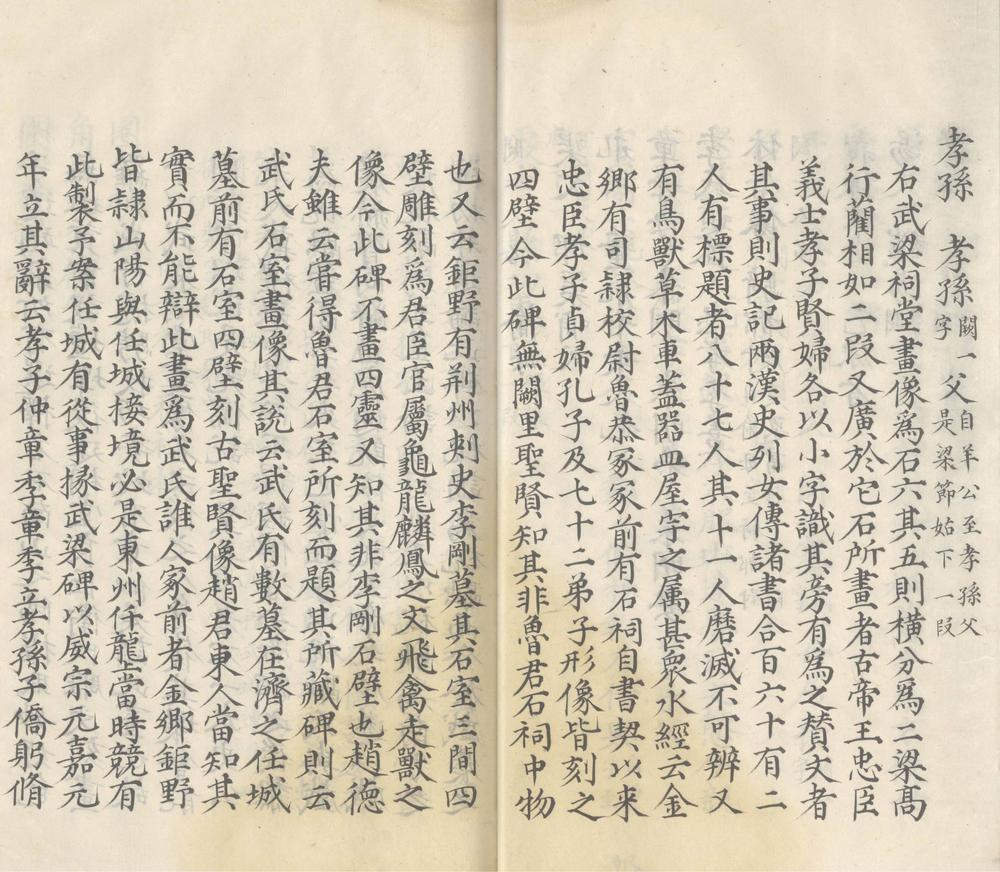 孝孫　孝孫闕字一父自羊公至孝孫父是梁節姑下一段
右武梁祠堂畫像為石六其五則橫分為二梁高
行藺相如二段又廣於它石所畫者古帝王忠臣
義士孝子賢婦各以小字識其旁有為之賛文者
其事則史記兩漢史列女傳諸書合百六十有二
人有標題者八十七人其十一人磨滅不可辨又
有鳥獸草木車蓋器皿屋宇之属甚衆水經云金
鄉有司隷校尉魯恭冢冢前有石祠自書契以来
忠臣孝子貞婦孔子及七十二弟子形像皆刻之
四壁今此碑無闕里聖賢知其非魯君石祠中物
也又云鉅野有荆州刺史李剛墓其石室三間四
壁雕刻為君臣官屬龜龍麟鳳之文飛禽走獸之
像今此碑不畫四靈又知其非李剛石壁也趙德
夫雖云嘗得魯君石室所刻而題其所藏碑則云
武氏石室畫像其説云武氏有數墓在濟之任城
墓前有石室四壁刻古聖賢像趙君東人當知其
實而不能辯此畫為武氏誰人家前者金鄉鉅野
皆隷山陽與任城接境必是東州仟龍當時競有
此製予案任城有從事掾武梁碑以威宗元嘉元
年立其辭云孝子仲章季章季立孝孫子僑躬脩